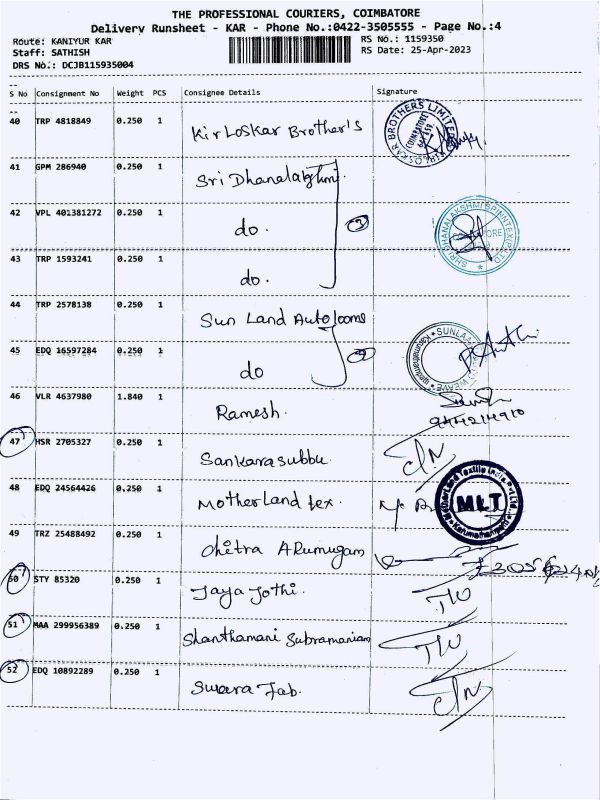 THE PROFESSIONAL COURIERS, COIMBATORE
Delivery Runsheet - KAR - Phone No.:0422-3505555 - Page No.:4
Route: KANIYUR KAR
RS No.: 1159350
Staff: SATHISH
RS Date: 25-Apr-2023
DRS No.: DCJB115935004
S No Consignment No Weight PCS Consignee Details Signature
40 TRP 4818849 0.250 1 Kirloskar Brother's
41 GPM 286940 0.250 1 Sri Dhanalakshmi
42 VPL 401381272 0.250 1 do. 3
43 TRP 1593241 0.250 1 do.
44 TRP 2578138 0.250 1 Sun Land Autolooms
45 EDQ 16597284 0.250 1 do
46 VLR 4637980 1.840 1 Ramesh.
47 HSR 2705327 0.250 1 Sankarasubbu
48 EDQ 24564426 0.250 1 Motherland tex. MLT
49 TRZ 25488492 0.250 1 Chitra ARumugam
50 STY 85320 0.250 1 Jaya Jothi.
51 MAA 299956389 0.250 1 Shanthamani Subramaniam
52 EDQ 10892289 0.250 1 Swara Fab.